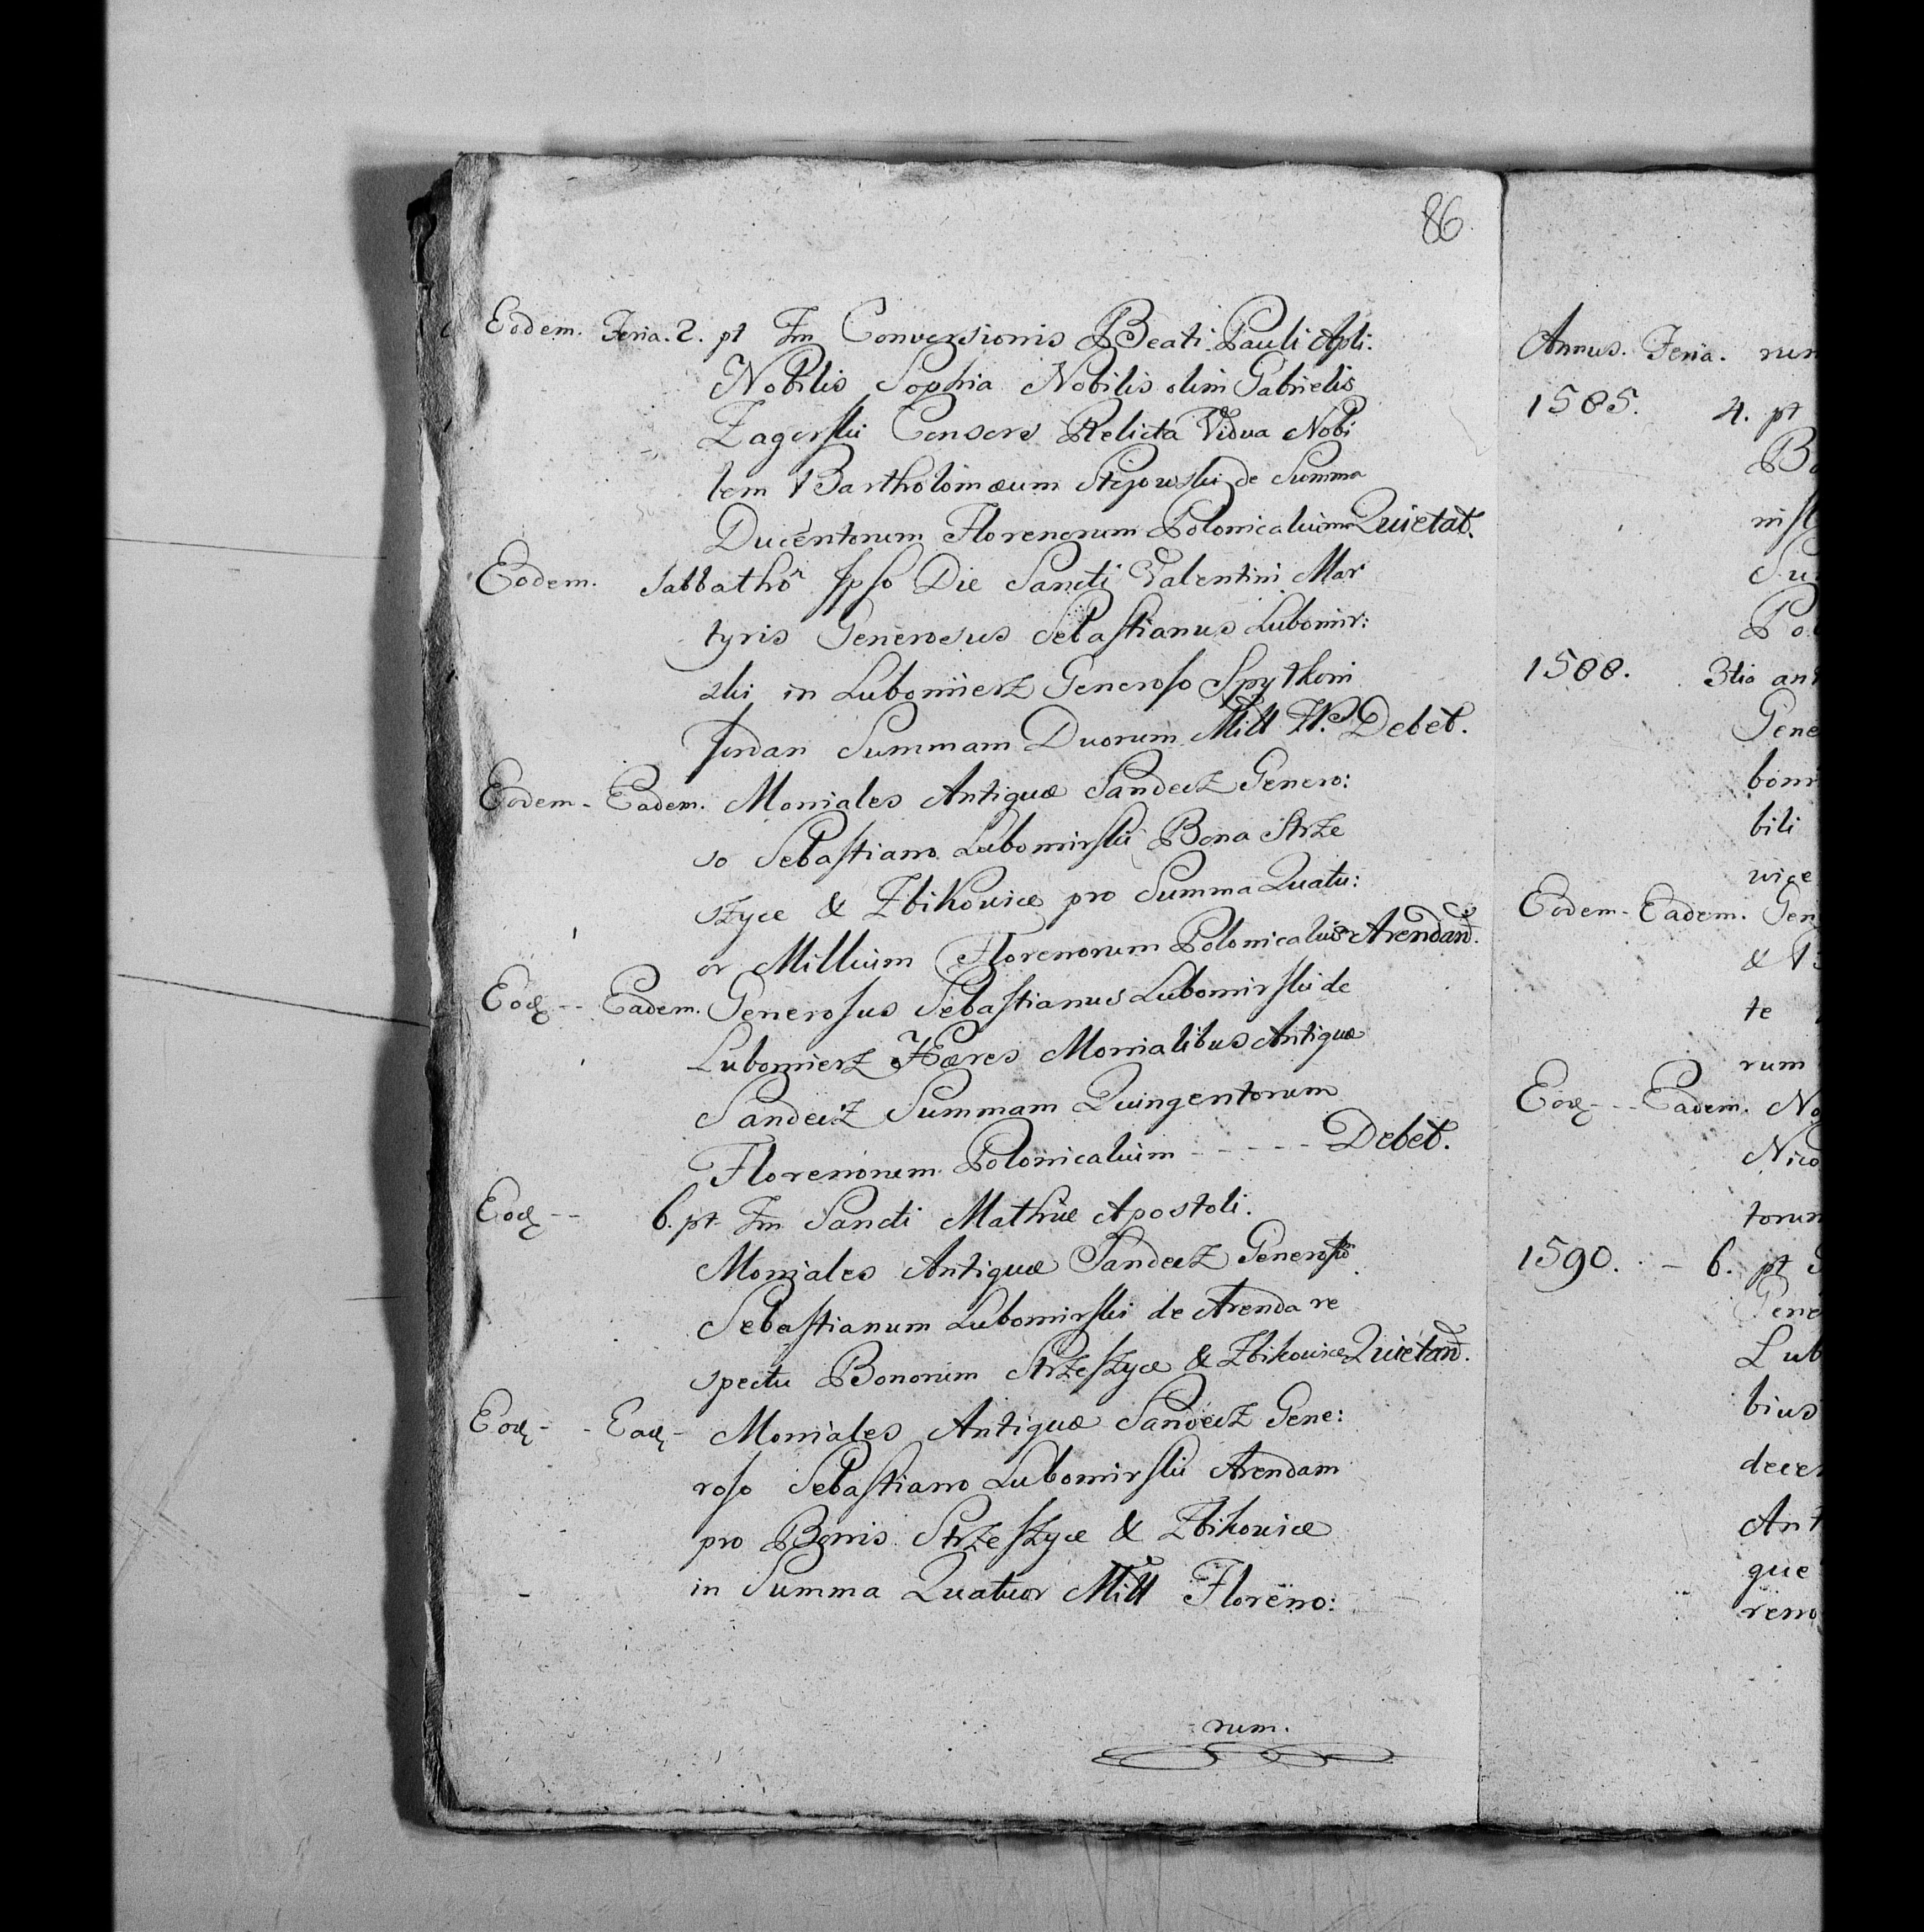 86.
Eodem. Feria. 2. pt Fm Conversionis Beati Pauli Apli.
Nobilis Sophia Nobilis olim Gabrielis
Zagorski Consors Relicta Vidua Nobi
lem Bartholomæum de Summa
Ducentorum Florenorum Polonicalium Quietat.
Eodem. Sabbatho Ipso Die Sancti Valentini Mar
tyris Generosus Sebastianus Lubomir:
ski in Lubomierz Generoso Spytkoni
Jordan Summam Duorum Mill Debet.
Eodem - Eadem. Moniales Antiquæ Sandecz Genero:
so Sebastiano Lubomirski Bona Strze
szyce & Zbikowice pro Summa Quatu:
or Millium Florenorum Polonicalium Arendant.
Eod -- Eadem. Generosus Sebastianus Lubomirski de
Lubomierz Hæres Monialibus Antiquæ
Sandecz Summam Quingentorum
Florenorum Polonicalium - - - - - Debet.
Eod -- 6. pt Fm Sancti Mathiæ Apostoli.
Moniales Antiquæ Sandecz Generosum
Sebastianum Lubomirski de Arenda re
spectu Bonorum Strzeszyce & Zbikowice Quietant.
Eod - - Ead - Moniales Antiquæ Sandecz Gene:
roso Sebastiano Lubomirski Arendam
pro Bonis Strzeszyce & Zbikowice
in Summa Quatuor Mill Floreno:
rum.
Annus. Feria.
1585. 4. pt
Po
1588. 3tio an
Gene
bom
bili
wice
Eodem - Eadem. Gen
te
rum
Eod - - Eadem. No
Nico
torum
1590. - 6. pt
Gene
Lub
bius
decem
Ant
que
reno